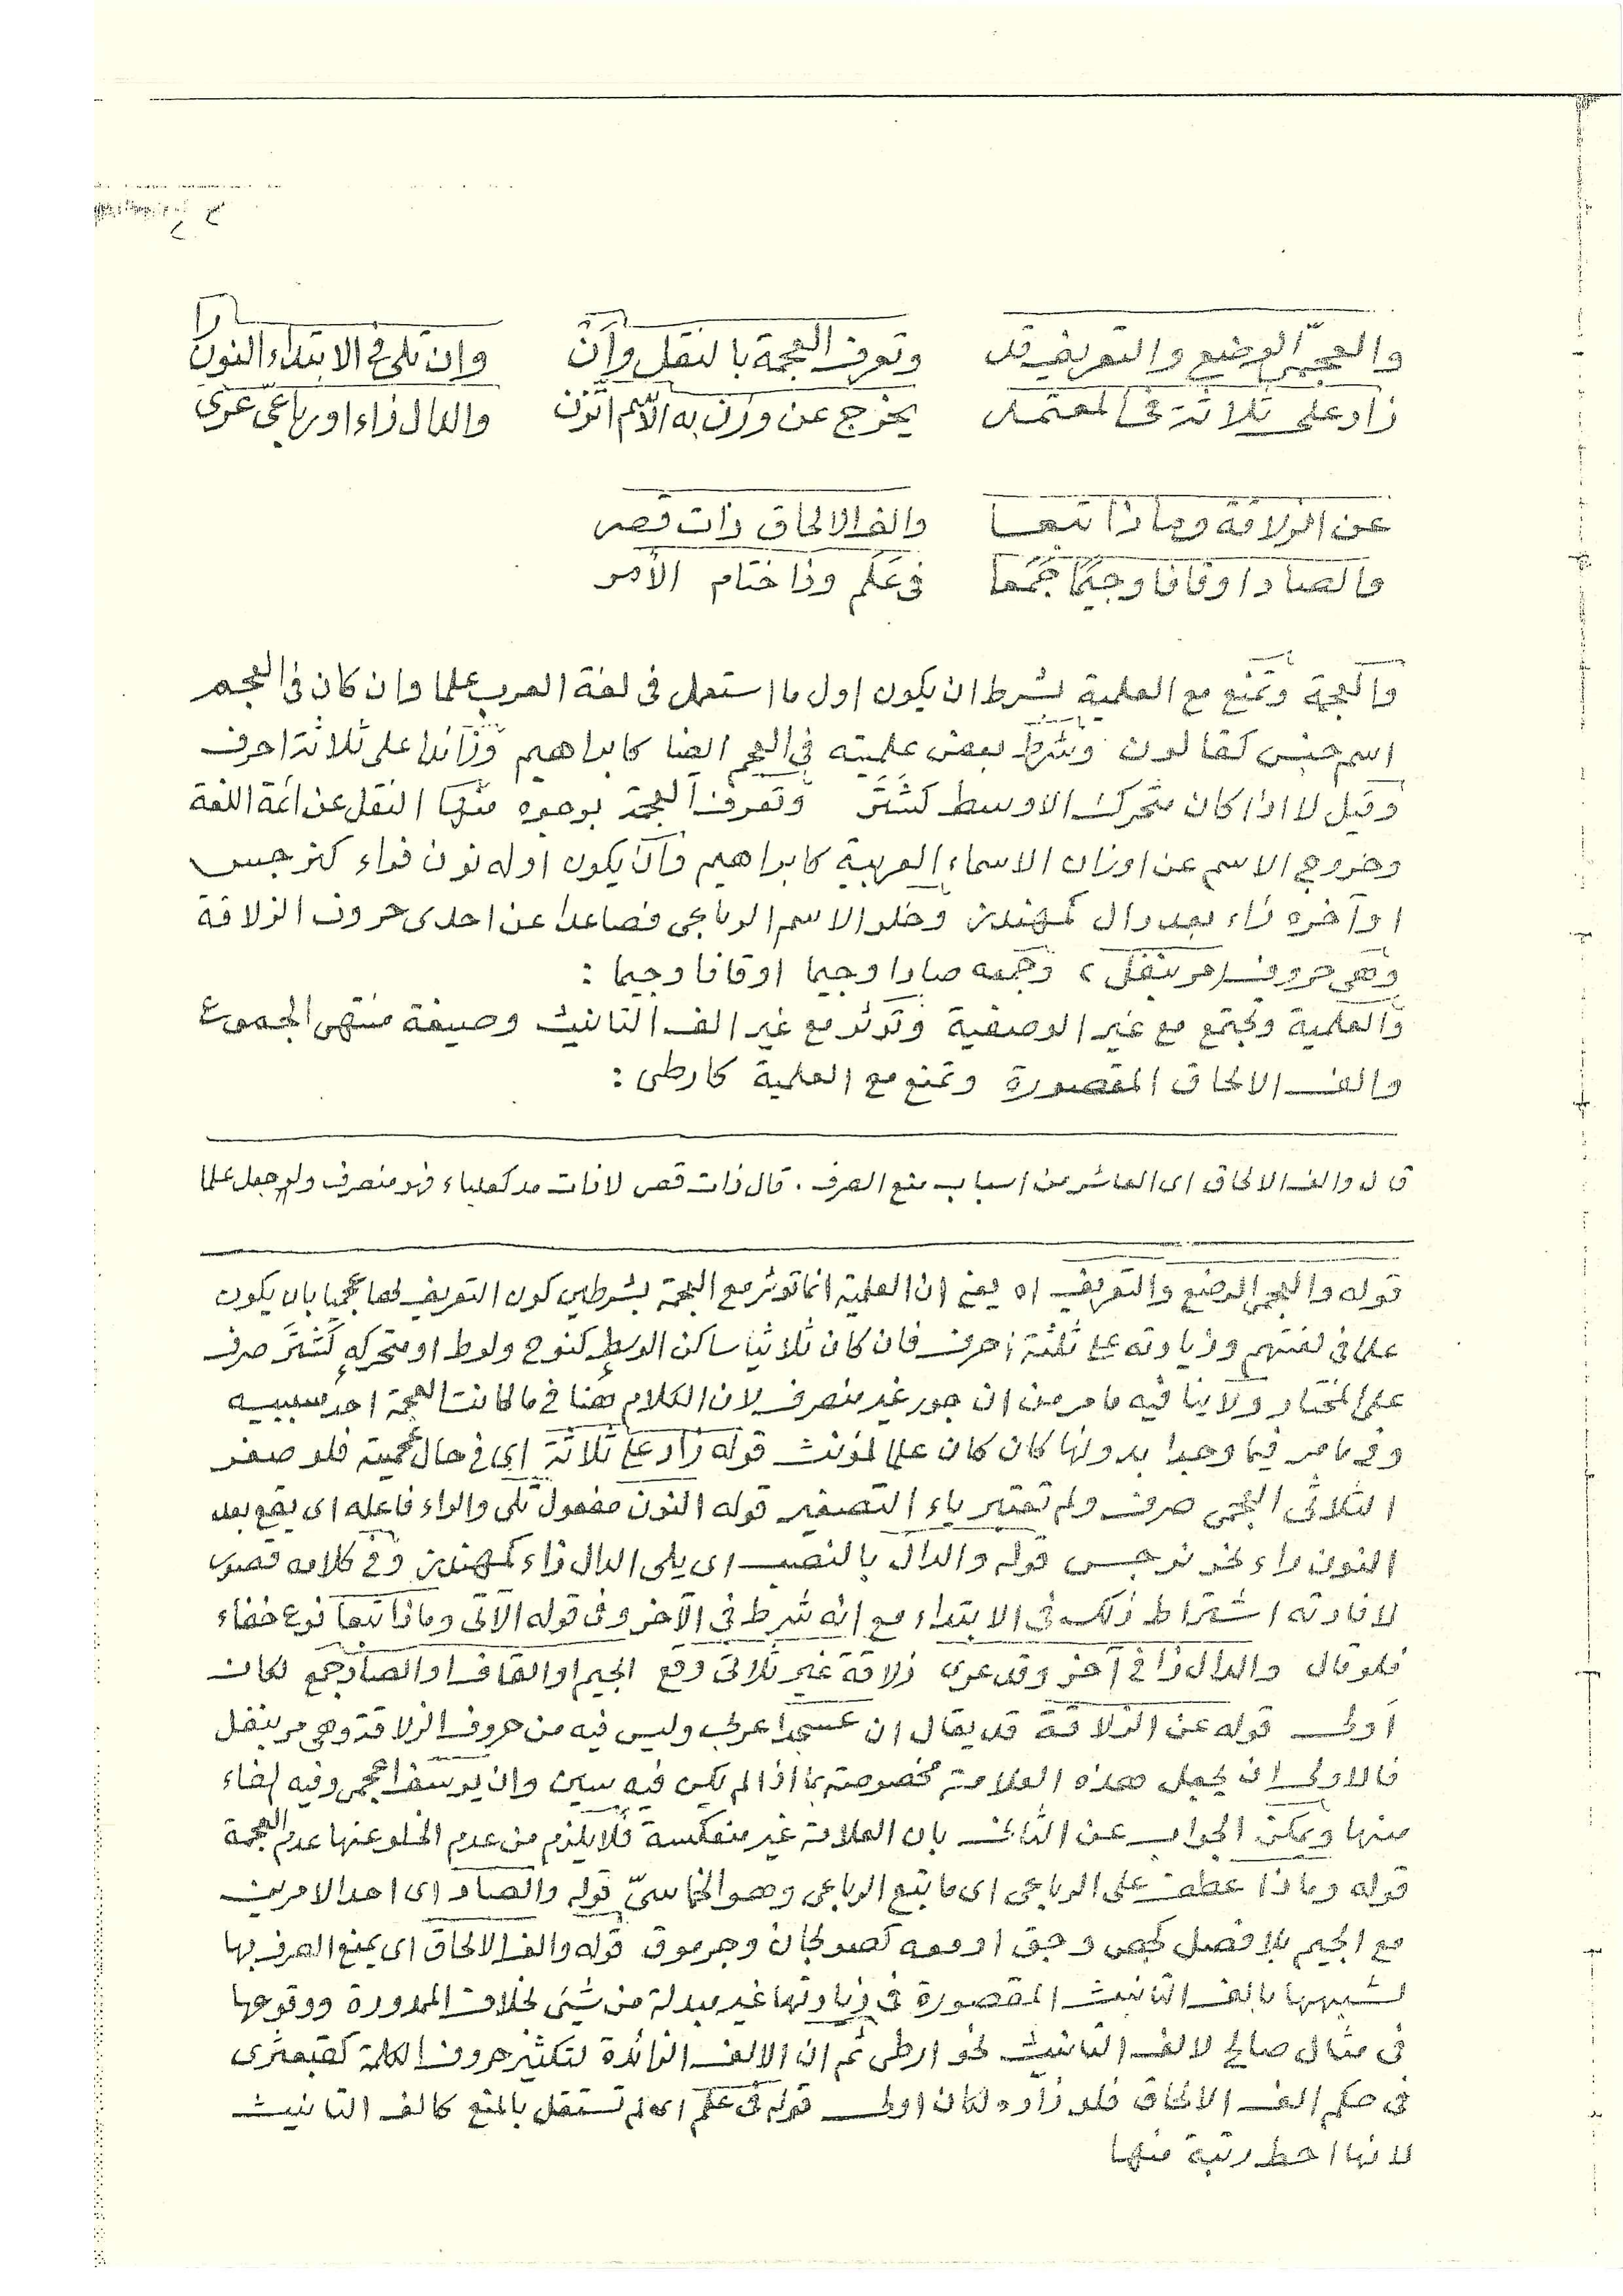 والعجميّ الوضع والتعريف قد     وتعرف العجمة بالنقل وأن     وان تلى فى الابتداء النون را
زاد على ثلاثة فى المعتمد     يخرج عن وزن به الاسم اتّزن     والدال زاء او رباعىّ عرى
عن الزلاقة وماذا تبعا     والف الالحاق ذات قصر
والصاد او قافا وجيمًا جَمَعا     فى عَلَم وذا ختام الأمر
والعجمة وتمنع مع العلمية بشرط ان يكون اول ما استعمل فى لغة العرب علما وان كان فى العجم
اسم جنس كقالون وشرط بعض علميته فى العجم ايضا كابراهيم وزائدا على ثلاثة احرف
وقيل لا اذا كان متحرك الاوسط كشَتَرَ وتعرف العجمة بوجوه منها النقل عن ائمة اللغة
وخروج الاسم عن اوزان الاسماء العربية كابراهيم وان يكون اوله نون فراء كنرجس
او آخره زاء بعد دال كمهندز وخلو الاسم الرباعى فصاعدا عن احدى حروف الزلاقة
وهى حروف مر بنفل، وجمعه صادا وجيما او قافا وجيما :
والعلمية وتجتمع مع غير الوصفية وتؤثر مع غير الف التانيث وصيغة منتهى الجموع
والف الالحاق المقصورة وتمنع مع العلمية كارطى :
قال والف الالحاق اى العاشر من اسباب منع الصرف . قال ذات قصر لا ذات مد كعلباء فهو منصرف ولو جعل علما
قوله والعجمى الوضع والتعريف اه يعنى ان العلمية انما توثر مع العجمة بشرطين كون التعريف لها عجميا بان يكون
علما فى لغتهم وزيادته على ثلثة احرف فان كان ثلاثيا ساكن الوسط كنوح ولوط او متحركه كَشَتَرَ صرف
على المختار ولا ينافيه ما مر من ان جور غير منصرف لان الكلام هنا فى ما كانت العجمة احد سببيه
وفى ما مر فيما وجدا بدونها كان كان علما لمؤنث قوله زاد على ثلاثة اى فى حال عجميته فلو صغر
الثلاثى العجمى صرف ولم تعتبر ياء التصغير قوله النون مفعول تلى والراء فاعله اى يقع بعد
النون راء نحو نرجس قوله والدال بالنصب اى يلى الدال زاء كمهندز وفى كلامه قصور
لافادته اشتراط ذلك فى الابتداء مع انه شرط فى الآخر وفى قوله الآتى وماذا تبعا نوع خفاء
فلو قال والدال زا فى آخر وقد عرى زلاقة غير ثلاثى وقع الجيم او القاف او الصاد جمع لكان
اولى قوله عن الزلاقة قد يقال ان عسجدا عربى وليس فيه من حروف الزلاقة وهى مر بنفل
فالاولى ان يجعل هذه العلامة مخصوصة بما اذا لم يكن فيه سين وان يوسف اعجمى وفيه الفاء
منها ويمكن الجواب عن الثانى بان العلامة غير منعكسة فلا يلزم من عدم الخلو عنها عدم العجمة
قوله وماذا عطف على الرباعى اى ما يتبع الرباعى وهو الخماسىّ قوله والصاد اى احد الامرين
مع الجيم بلا فصل كجص وجق او معه كصولجان وجرموق قوله والف الالحاق اى يمنع الصرف بها
لشبهها بالف التانيث المقصورة فى زيادتها غير مبدلة من شئ بخلاف الممدودة ووقوعها
فى مثال صالح لالف التانيث نحو ارطى ثم ان الالف الزائدة لتكثير حروف الكلمة كقبعثرى
فى حكم الف الالحاق فلو زاده لكان اولى قوله فى علم اى لم تستقل بالمنع كالف التانيث
لانها احط رتبة منها